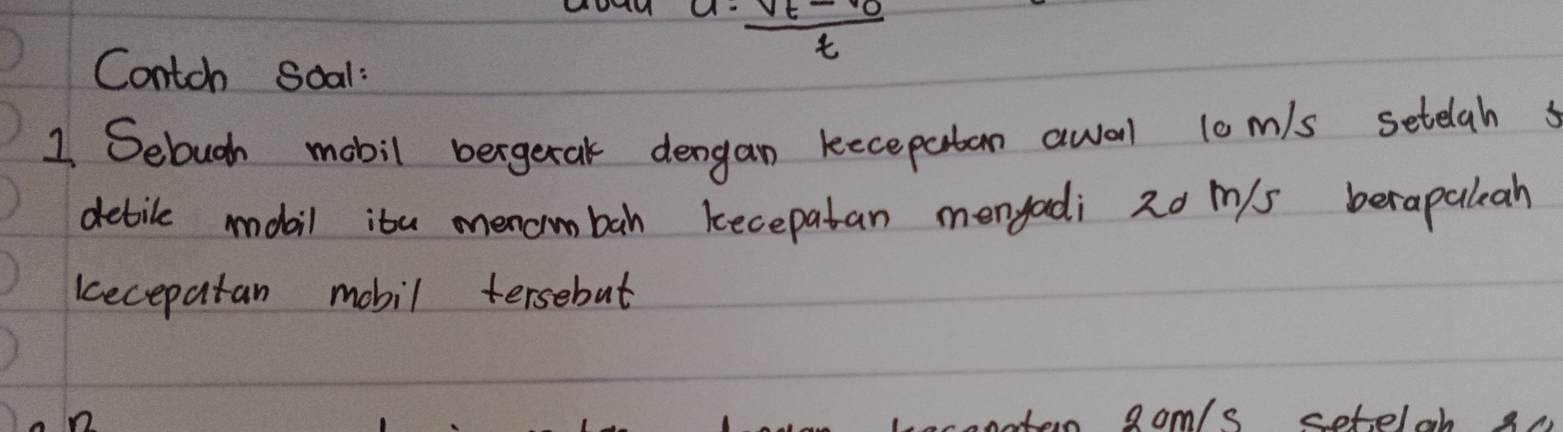 atau a = Vt - V0
t
Contoh Soal:
1. Sebuah mobil bergerak dengan kecepatan awal 10 m/s setelah 5
detik mobil itu menambah kecepatan menjadi 20 m/s berapakah
kecepatan mobil tersebut
kecepatan 20m/s setelah